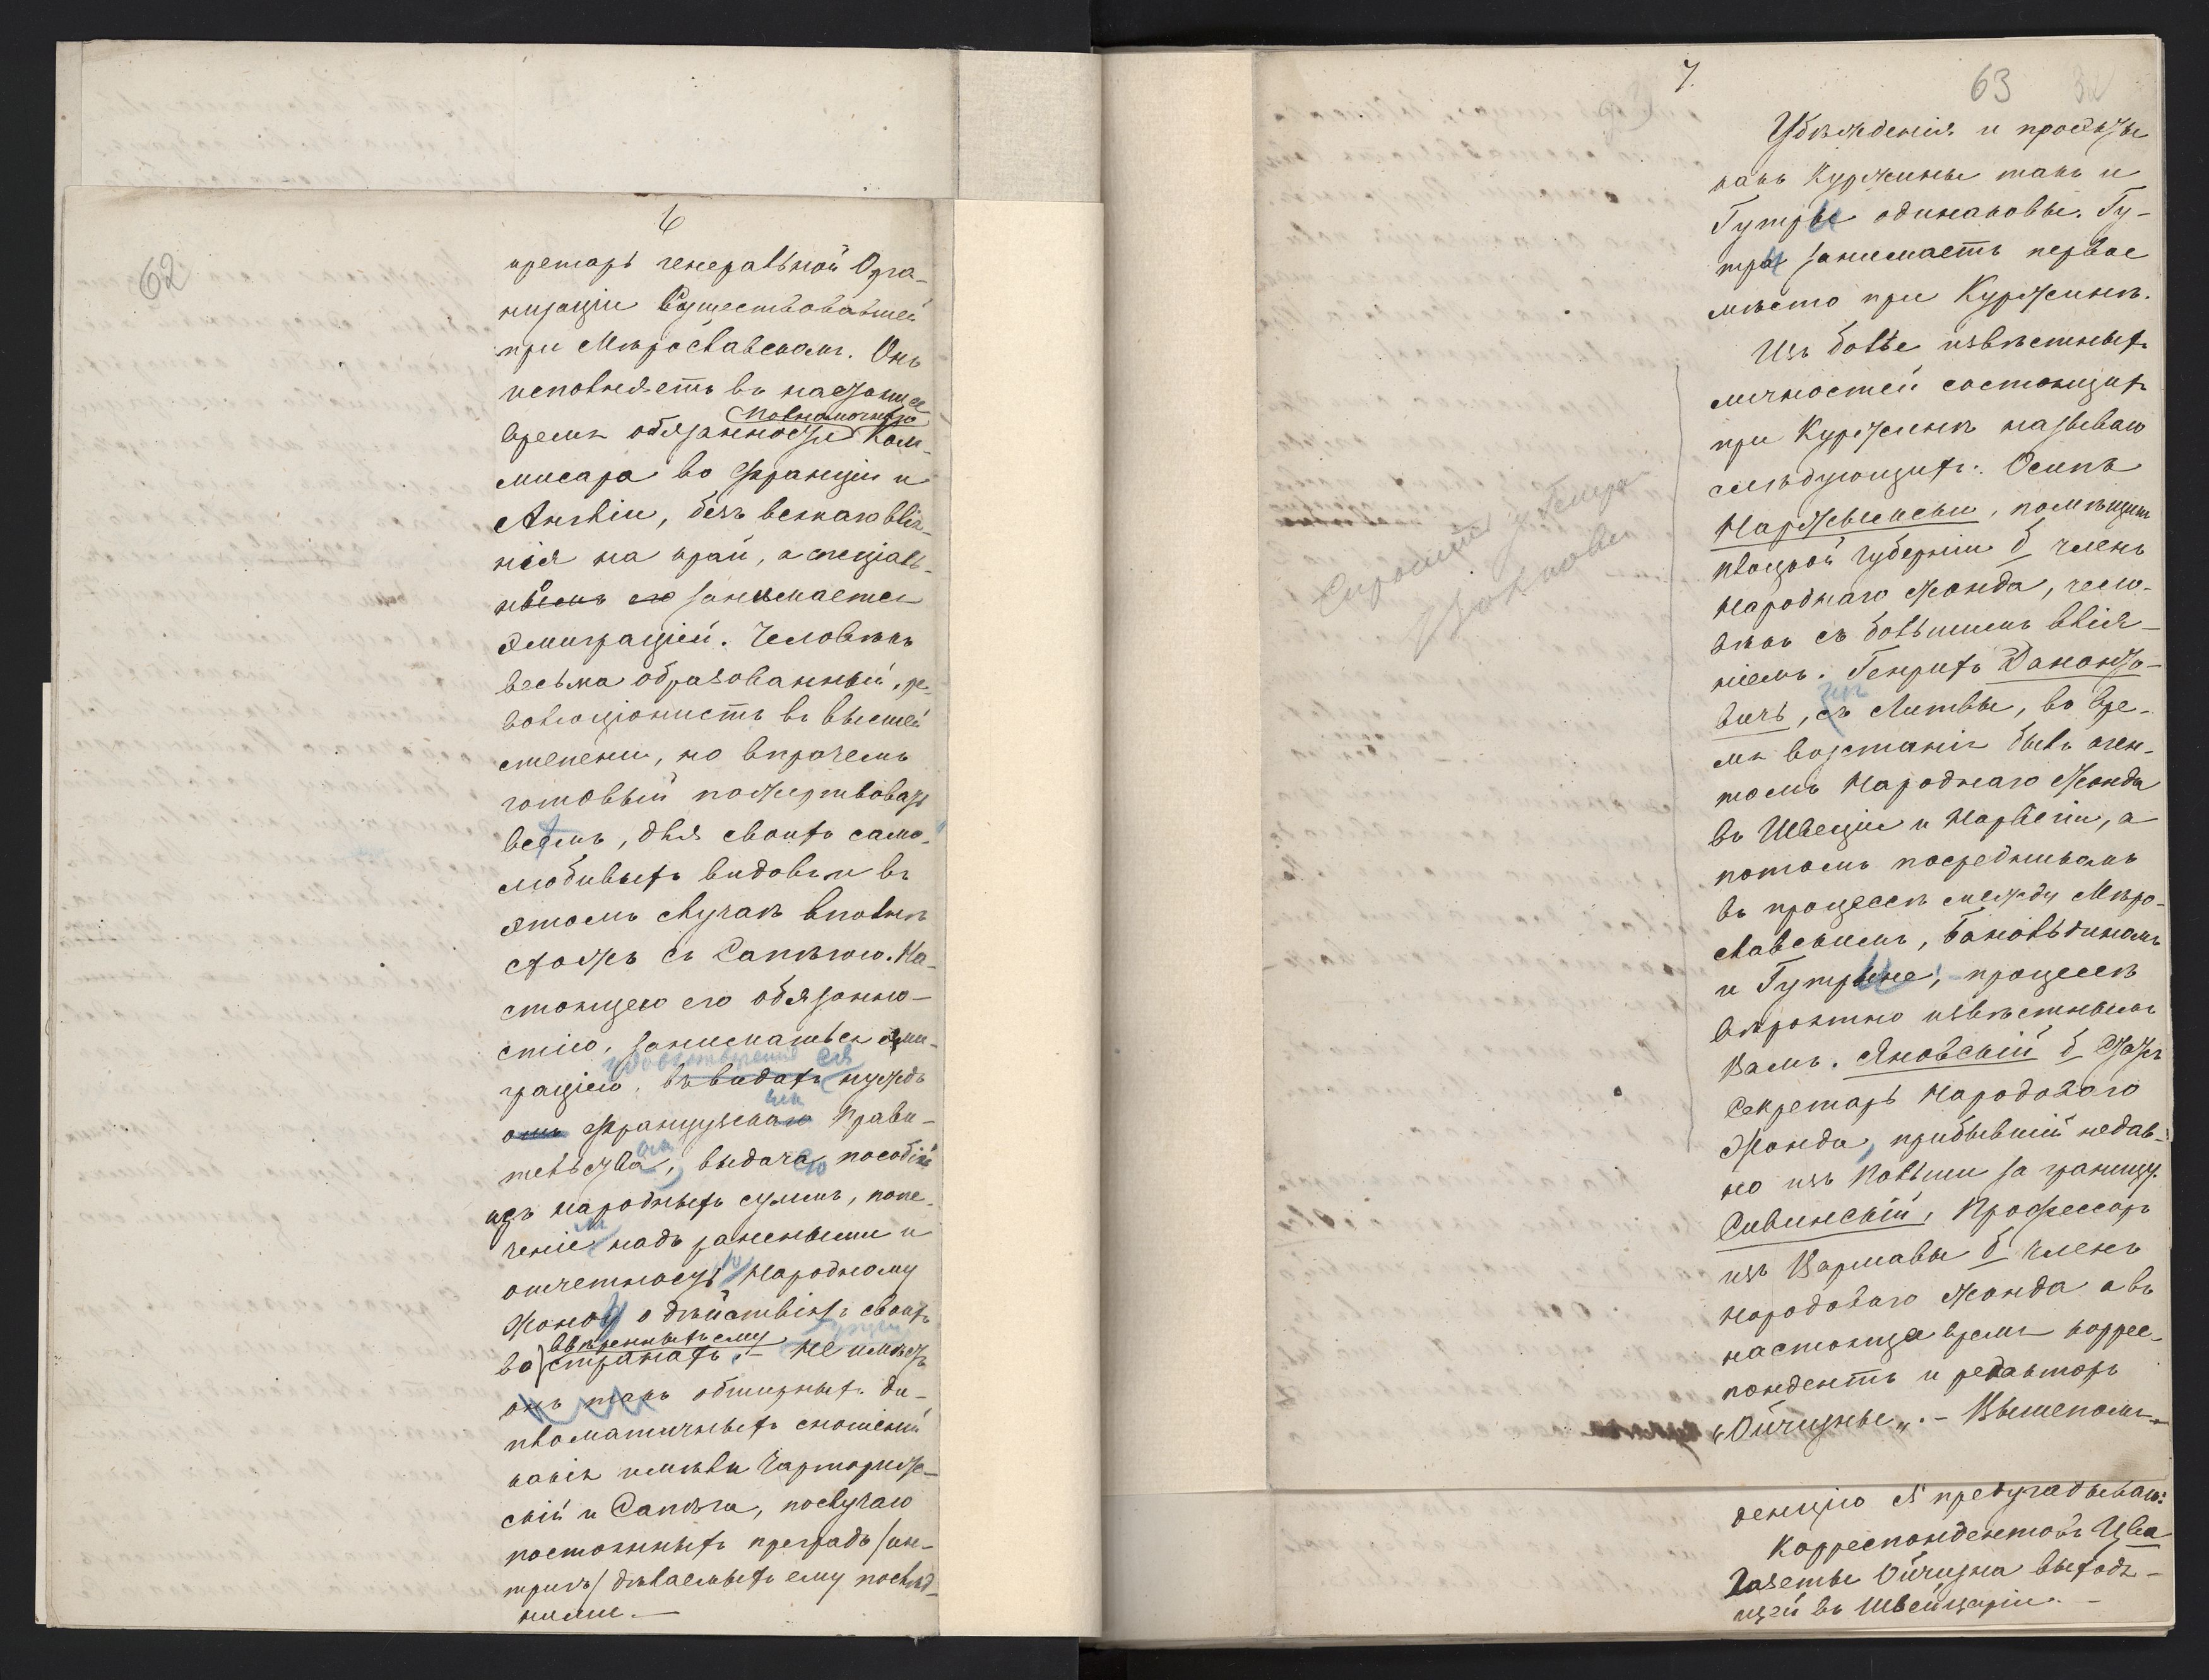 6
62
кретарь генеральной Орга-
низаціи Существовавшей
при Мѣрославскомъ. Онъ
исполняетъ въ настоящее
Полномочнаго
время обязанности Ком-
мисара во Франціи и
Англіи, безъ всякаго влія-
нія на край, а спеціаль-
но занимается
Эмиграціей. Человѣкъ
весьма образованный, ре-
волюціонистъ въ высшей
степени, но впрочемъ
готовый пожертвовать
всѣмъ, для своихъ само-
любивыхъ видовъ и въ
этомъ случаѣ вполнѣ
схожъ съ Сапѣгою. На-
стоящею его обязанно-
стію, заниматься эми-
удовлетвореніе ея
граціею, въ видахъ нуждъ
отъ Французскаго Прави-
тельства, выдача пособій
изъ народныхъ суммъ, попе-
ченіе надъ ранеными и
отчетность Народному
Жонду о дѣйствіяхъ своихъ
ввѣренныхъ ему
во странахъ. – Не имѣетъ
онъ такъ обширныхъ ди-
пломатичныхъ сношеній
какія имѣли Чарторыж-
скій и Сапѣга, по случаю
постоянныхъ преградъ /ин-
тригъ/ дѣлаемыхъ ему послѣд-
ними. —
7.
63
Убѣжденія и проэкты
какъ Куржины такъ и
Гутры одинаковы. Гу-
тры занимаетъ первое
мѣсто при Куржинѣ.
Изъ болѣе извѣстныхъ
личностей состоящихъ
при Куржинѣ называю
слѣдующихъ: Осипъ
Наржымскій, помѣщикъ
Плоцкой Губерніи б членъ
Народнаго Жонда, чело-
вѣкъ съ большимъ влія-
ніемъ. Генрихъ
вичъ, съ Литвы, во вре-
мя возстанія былъ аген-
томъ Народнаго Жонда
въ Швеціи и Норвегіи, а
потомъ посредникомъ
въ процессѣ между Мѣро-
славскимъ,
и Гутры, процессъ
вѣроятно извѣстный
Вамъ. Яновскій б Статсъ
Секретарь Народоваго
Жонда, прибывшій недав-
но изъ Польши за границу.
Сивинскій, Профессоръ
изъ Варшавы б членъ
Народоваго Жонда а въ
настоящее время коррес-
пондентъ и редакторъ
„Ойчизны„. – Вышепомя-
Спросить у
денцію я предугадываю:
Корреспондентовъ
Газеты Ойчизна выходя-
щей въ Швейцаріи. –